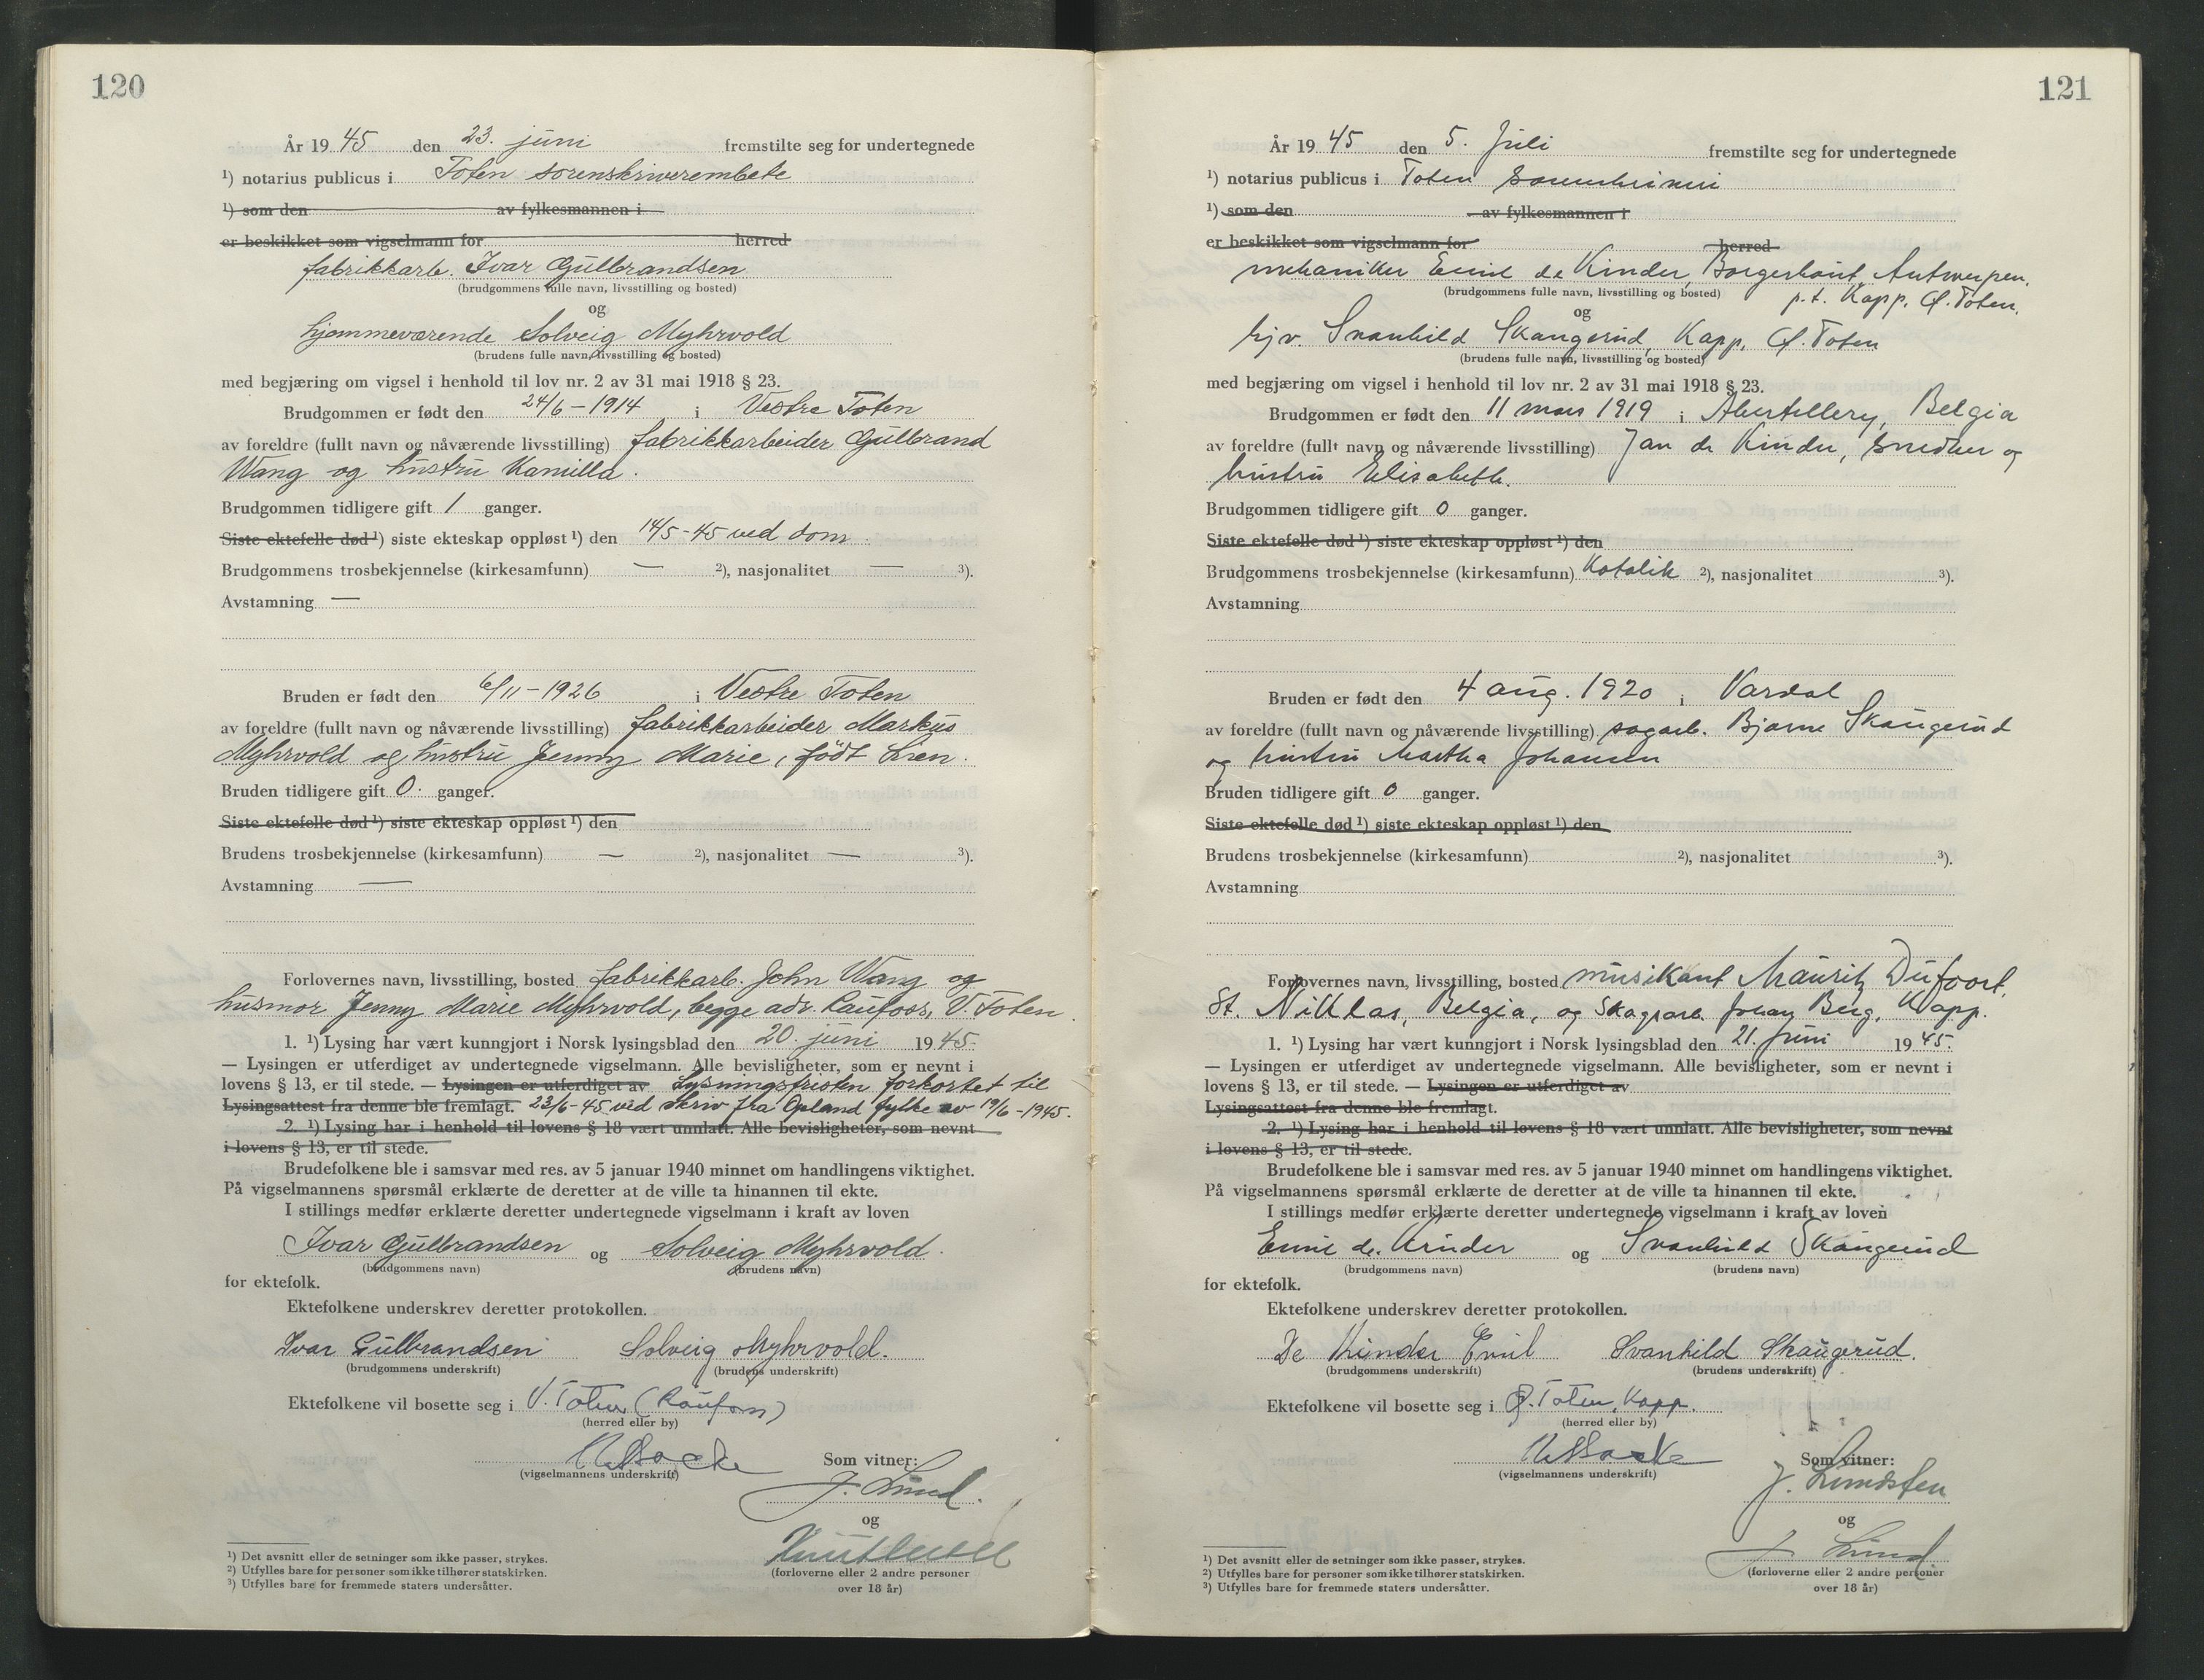 120
År 1945 den 23. juni fremstilte seg for undertegnede
¹) notarius publicus i Toten sorenskriverembete
¹) som den av fylkesmannen i
er beskikket som vigselmann for herred
fabrikkarb. Ivar Gulbrandsen
(brudgommens fulle navn, livsstilling og bosted)
og
hjemmeværende Solveig Myhrvold
(brudens fulle navn, livsstilling og bosted)
med begjæring om vigsel i henhold til lov nr. 2 av 31 mai 1918 § 23.
Brudgommen er født den 24/6-1914 i Vestre Toten
av foreldre (fullt navn og nåværende livsstilling) fabrikkarbeider Gulbrand
Wang og hustru Kamilla.
Brudgommen tidligere gift 1 ganger.
Siste ektefelle død ¹) siste ekteskap oppløst ¹) den 14/5-45 ved dom.
Brudgommens trosbekjennelse (kirkesamfunn) — ²), nasjonalitet — ³).
Avstamning —
Bruden er født den 6/11-1926 i Vestre Toten
av foreldre (fullt navn og nåværende livsstilling) fabrikkarbeider Markus
Myhrvold og hustru Jenny Marie, født Lien.
Bruden tidligere gift 0. ganger.
Siste ektefelle død ¹) siste ekteskap oppløst ¹) den
Brudens trosbekjennelse (kirkesamfunn) — ²), nasjonalitet — ³).
Avstamning —
Forlovernes navn, livsstilling, bosted fabrikkarb. John Wang og
husmor Jenny Marie Myhrvold, begge adr. Raufoss, V. Toten.
1. ¹) Lysing har vært kunngjort i Norsk lysingsblad den 20. juni 1945.
— Lysingen er utferdiget av undertegnede vigselmann. Alle bevisligheter, som er nevnt i
lovens § 13, er til stede. — Lysingen er utferdiget av Lysningsfristen forkortet til
Lysingsattest fra denne ble fremlagt. 23/6-45 ved skriv fra Opland fylke av 19/6-1945.
2. ¹) Lysing har i henhold til lovens § 18 vært unnlatt. Alle bevisligheter, som nevnt
i lovens § 13, er til stede.
Brudefolkene ble i samsvar med res. av 5 januar 1940 minnet om handlingens viktighet.
På vigselmannens spørsmål erklærte de deretter at de ville ta hinannen til ekte.
I stillings medfør erklærte deretter undertegnede vigselmann i kraft av loven
Ivar Gulbrandsen og Solveig Myhrvold.
(brudgommens navn) (brudens navn)
for ektefolk.
Ektefolkene underskrev deretter protokollen.
Ivar Gulbrandsen Solveig Myhrvold.
(brudgommens underskrift) (brudens underskrift)
Ektefolkene vil bosette seg i V. Toten (Raufoss)
(herred eller by)
Som vitner:
(vigselmannens underskrift)
J. Lund.
og
(forloverne eller 2 andre personer
over 18 år)
¹) Det avsnitt eller de setninger som ikke passer, strykes.
²) Utfylles bare for personer som ikke tilhører statskirken.
³) Utfylles bare for fremmede staters undersåtter.
121
År 1945 den 5. Juli fremstilte seg for undertegnede
¹) notarius publicus i Toten sorenskriveri
¹) som den av fylkesmannen i
er beskikket som vigselmann for herred
mekaniker Emil de Kinder, Borgerhout, Antwerpen.
(brudgommens fulle navn, livsstilling og bosted) p.t. Kapp. Ø. Toten.
og
hjv. Svanhild Skaugerud, Kapp, Ø. Toten
(brudens fulle navn, livsstilling og bosted)
med begjæring om vigsel i henhold til lov nr. 2 av 31 mai 1918 § 23.
Brudgommen er født den 11 mars 1919 i Abertillery, Belgia
av foreldre (fullt navn og nåværende livsstilling) Jan de Kinder, snedker og
hustru Elisabeth.
Brudgommen tidligere gift 0 ganger.
Siste ektefelle død ¹) siste ekteskap oppløst ¹) den
Brudgommens trosbekjennelse (kirkesamfunn) Katolik ²), nasjonalitet ³).
Avstamning
Bruden er født den 4 aug. 1920 i Vardal
av foreldre (fullt navn og nåværende livsstilling) sagarb. Bjarne Skaugerud
og hustru Martha Johansen
Bruden tidligere gift 0 ganger.
Siste ektefelle død ¹) siste ekteskap oppløst ¹) den
Brudens trosbekjennelse (kirkesamfunn) ²), nasjonalitet ³).
Avstamning
Forlovernes navn, livsstilling, bosted musikant Mauritz Dufoort,
St. Niklas, Belgia, og skogsarb. Johan Berg, Kapp.
1. ¹) Lysing har vært kunngjort i Norsk lysingsblad den 21. Juni 1945.
— Lysingen er utferdiget av undertegnede vigselmann. Alle bevisligheter, som er nevnt i
lovens § 13, er til stede. — Lysingen er utferdiget av
Lysingsattest fra denne ble fremlagt.
2. ¹) Lysing har i henhold til lovens § 18 vært unnlatt. Alle bevisligheter, som nevnt
i lovens § 13, er til stede.
Brudefolkene ble i samsvar med res. av 5 januar 1940 minnet om handlingens viktighet.
På vigselmannens spørsmål erklærte de deretter at de ville ta hinannen til ekte.
I stillings medfør erklærte deretter undertegnede vigselmann i kraft av loven
Emil de Kinder og Svanhild Skaugerud
(brudgommens navn) (brudens navn)
for ektefolk.
Ektefolkene underskrev deretter protokollen.
De Kinder Emil Svanhild Skaugerud.
(brudgommens underskrift) (brudens underskrift)
Ektefolkene vil bosette seg i Ø. Toten, Kapp.
(herred eller by)
Som vitner:
(vigselmannens underskrift)
J. Lundsten
og
J. Lund
(forloverne eller 2 andre personer
over 18 år)
¹) Det avsnitt eller de setninger som ikke passer, strykes.
²) Utfylles bare for personer som ikke tilhører statskirken.
³) Utfylles bare for fremmede staters undersåtter.